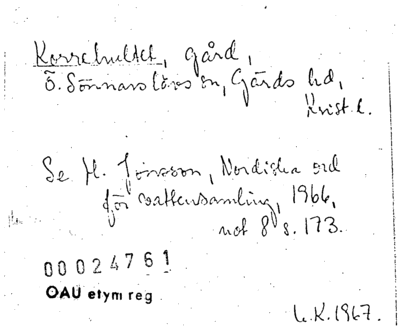 Korrehultet, gård,
Ö. Sönnarslövs sn, Gärds hd,
Krist. l.
Se H. Jonsson, Nordiska ord
för vattensamling, 1966,
not 8 s. 173.
00024761
OAU etym reg
L.K. 1967.